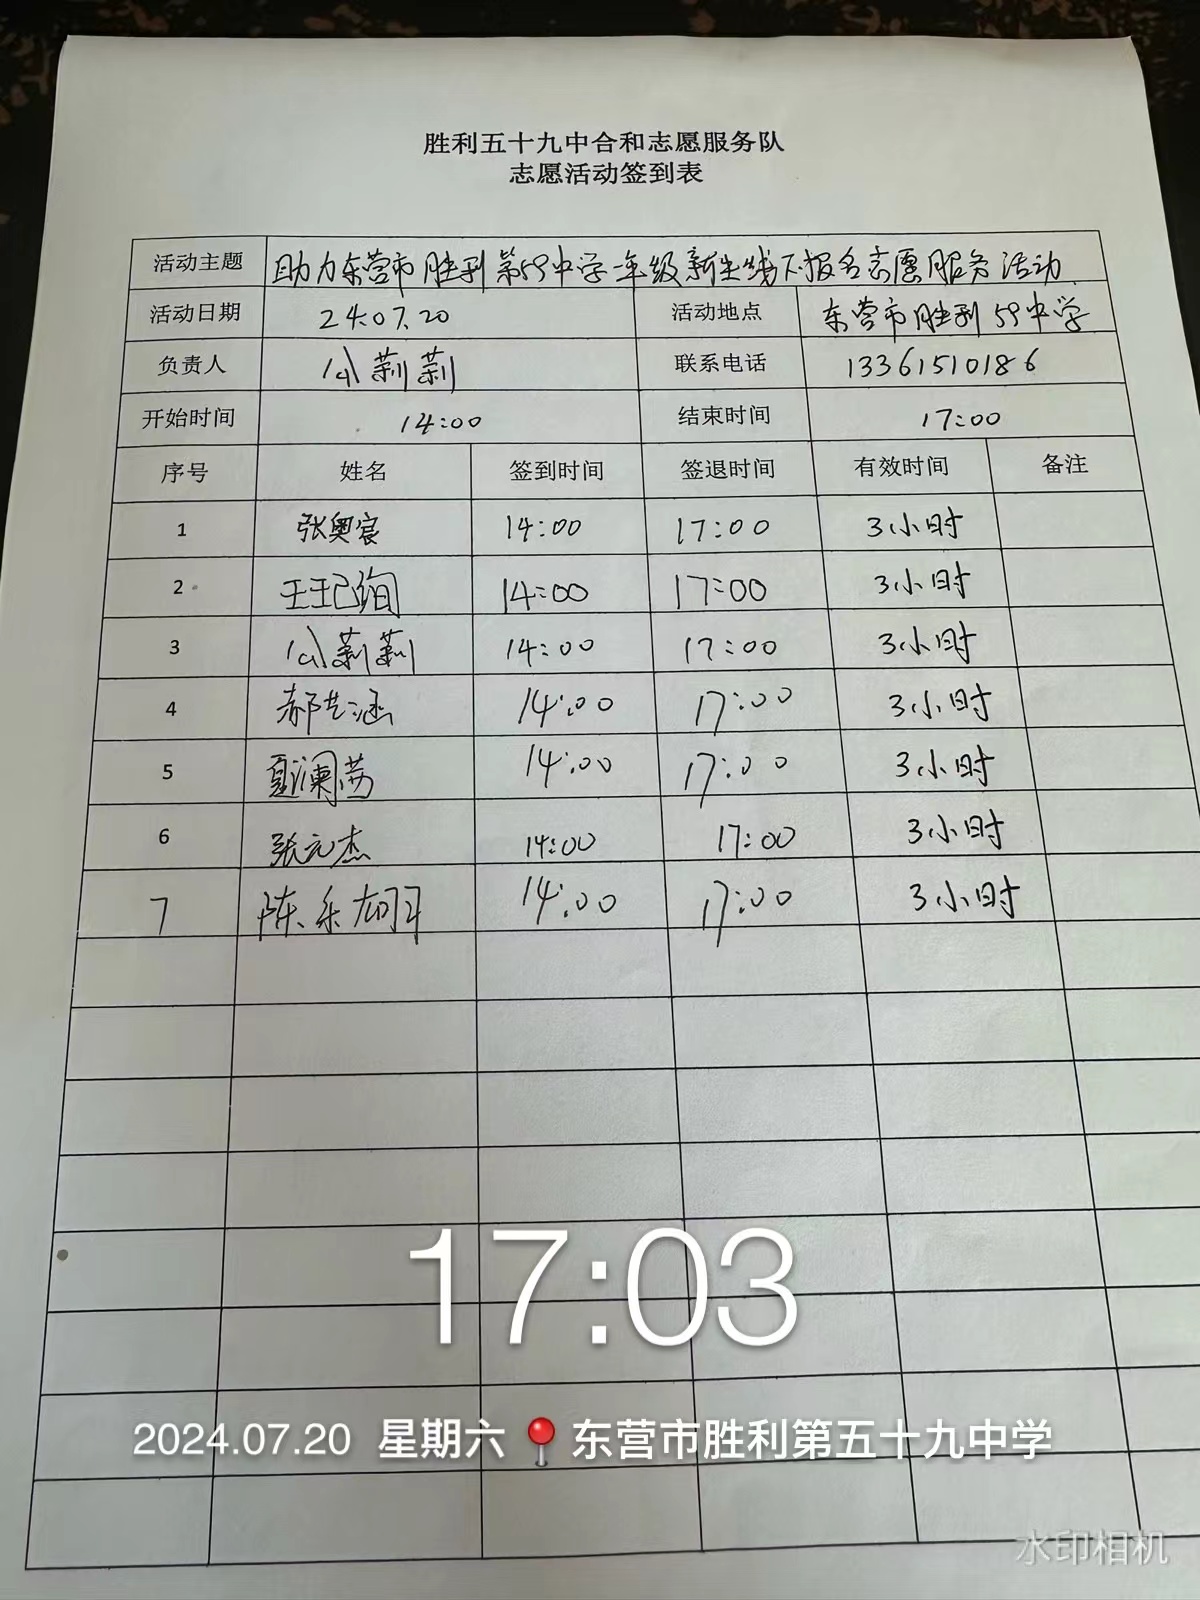 胜利五十九中合和志愿服务队
志愿活动签到表
活动主题 助力东营市胜利第59中学一年级新生线下报名志愿服务活动
活动日期 24.07.20 活动地点 东营市胜利59中学
负责人 公莉莉 联系电话 13361510186
开始时间 14:00 结束时间 17:00
序号 姓名 签到时间 签退时间 有效时间 备注
1 张奥宸 14:00 17:00 3小时
2 14:00 17:00 3小时
3 公莉莉 14:00 17:00 3小时
4 郝艺涵 14:00 17:00 3小时
5 夏澜 14:00 17:00 3小时
6 张元杰 14:00 17:00 3小时
7 陈乐 14:00 17:00 3小时
17:03
2024.07.20 星期六 东营市胜利第五十九中学
水印相机